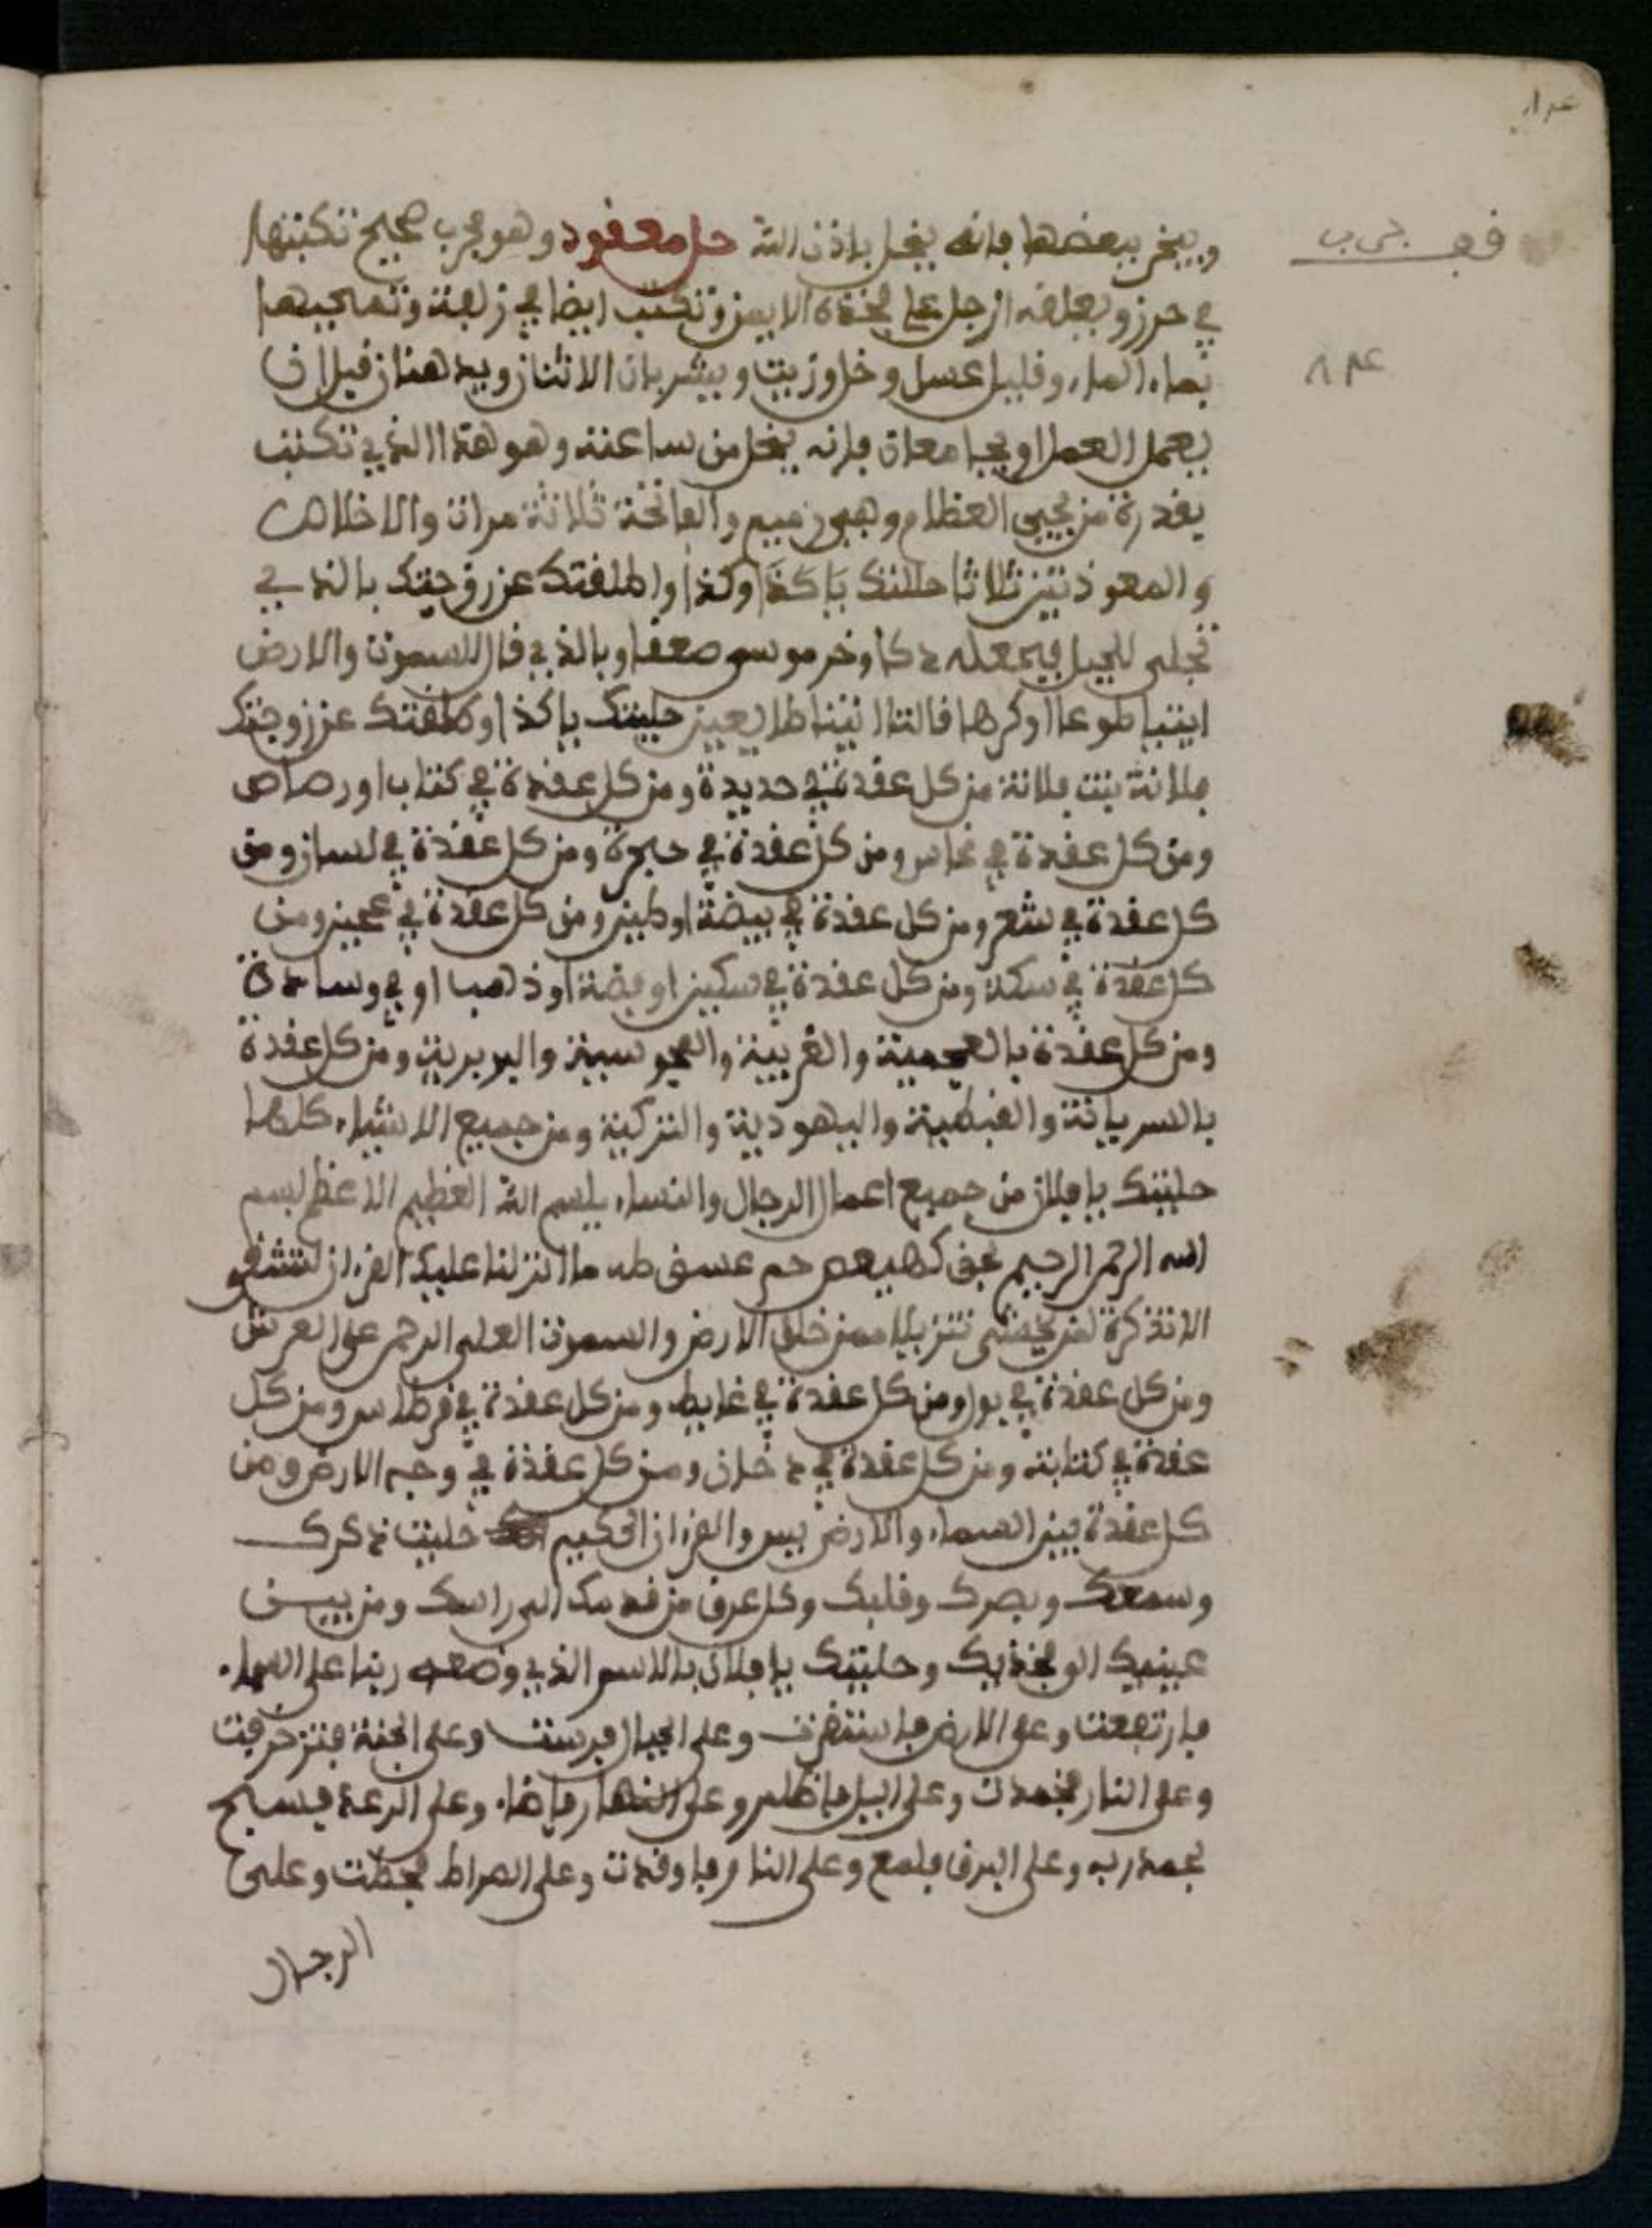 ويبخر ببعضها فإنه ينحل بإذن الله حل معقود وهو مجرب صحيح تكتبها
في حرز ويعلقه الرجل على فخذه الايمن وتكتب ايضا في زلافة وتمحيها
بماء الماء وقليل عسل وخل وزيت ويشربان الاثنان ويدهنان قبل ان
يعمل العمل او يجامعان فإنه ينحل من ساعته وهو هذا الذي تكتب
بقدرة من يحيي العظام وهي رميم والفاتحة ثلاثة مرات والاخلاص
والمعوذتين ثلاثا حللتك يا كذا وكذا واطلقتك عن زوجتك بالذي
تجلى للجبل فجعله دكا وخر موسى صعقا وبالذي قال للسموت والارض
ايتيا طوعا او كرها قالتا اتينا طايعين حليتك يا كذا وطلقتك عن زوجتك
فلانة بنت فلانة من كل عقدة في حديدة ومن كل عقدة في كتاب او رصاص
ومن كل عقدة في نحاس ومن كل عقدة في حجرة ومن كل عقدة في لسان ومن
كل عقدة في شعر ومن كل عقدة في بيضة او طين ومن كل عقدة في عجين ومن
كل عقدة في سكة ومن كل عقدة في سكين او فضة او ذهب او في وسادة
ومن كل عقدة بالعجمية والعربية والمجوسية والبربرية ومن كل عقدة
بالسريانة والقبطية واليهودية والتركية ومن جميع الاشياء كلها
حليتك يا فلان من جميع اعمال الرجال والنساء بسم الله العظيم الاعظم بسم
الله الرحمن الرحيم بحق كهيعص حم عسق طه ما انزلنا عليك القران لتشقى
الا تذكرة لمن يخشى تنزيلا ممن خلق الارض والسموت العلى الرحمن على العرش
ومن كل عقدة في بول ومن كل عقدة في غايط ومن كل عقدة في قرطاس ومن كل
عقدة في كتابة ومن كل عقدة في دخان ومن كل عقدة في وجه الارض ومن
كل عقدة بين السماء والارض يس والقران الحكيم حليت ذكرك
وسمعك وبصرك وقلبك وكل عرق من قدمك الى راسك ومن بين
عينيك الى فخذيك وحليتك يا فلان بالاسم الذي وضعه ربنا على السماء
فارتفعت وعلى الارض فاستقرت وعلى الجبال فرست وعلى الجنة فتزخرفت
وعلى النار فخمدت وعلى اليل فاظلم وعلى النهار فاضاء وعلى الرعد فيسبح
بحمد ربه وعلى البرق فلمع وعلى النار فاوقدت وعلى الصراط فحطت وعلى
الرجال